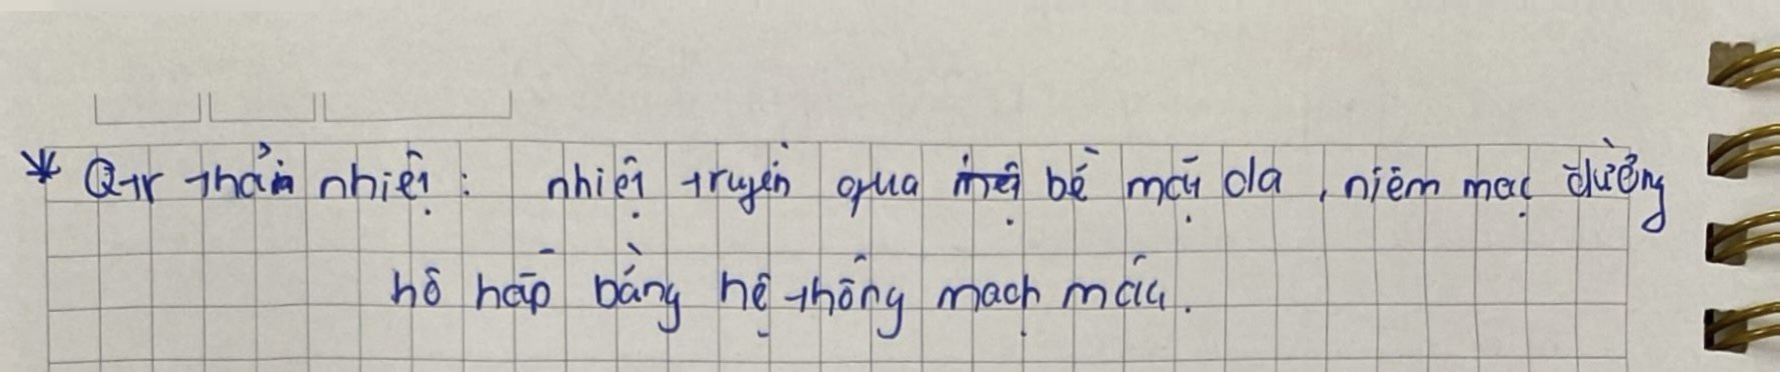 * Qtr thải nhiệt : nhiệt truyền qua bề mặt da , niêm mạc đường
hô hấp bằng hệ thống mạch máu.